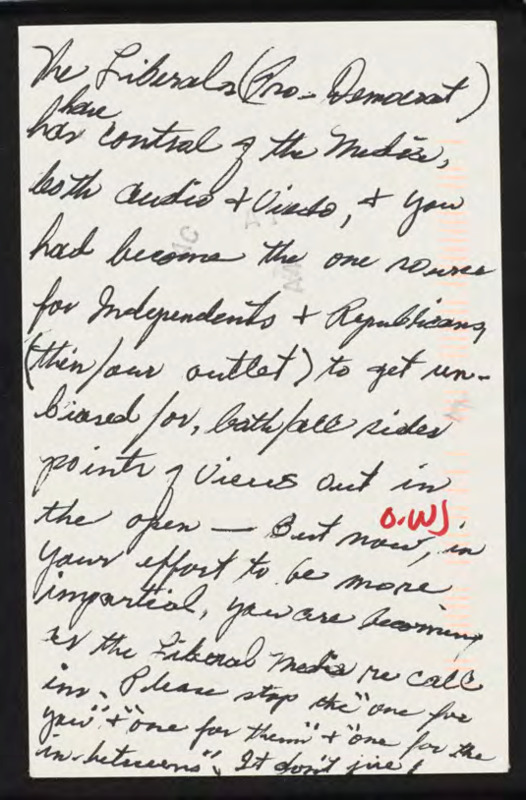 The Liberals (Pro-Democrat)
have
has control of the Media,
both audio + Video, + you
had become the one source
for Independents + Republicans
(their/our outlet) to get un-
biased /or, both/all sides
points of views out in
the open — But now, in
O.WJ
your effort to be more
impartial, you are becoming
as the Liberal Media re call
ins. Please stop the "one for
you" + "one for them" + "one for the
in-betweens". It don't jive!